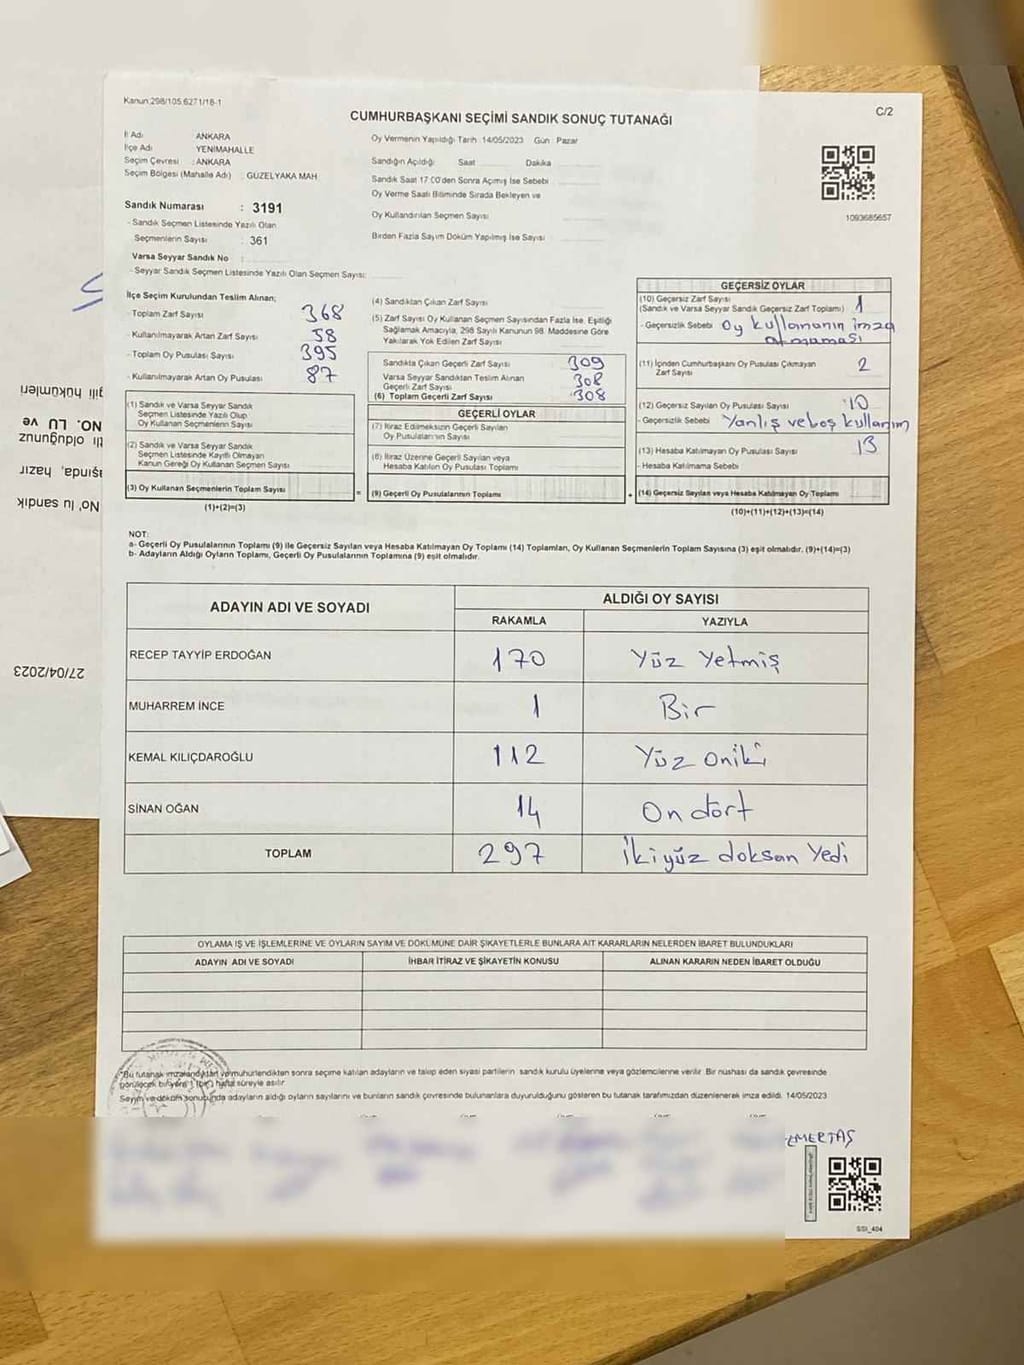 Kanun:298/105,6271/18-1
C/2
CUMHURBAŞKANI SEÇİMİ SANDIK SONUÇ TUTANAĞI
İl Adı ANKARA
İlçe Adı YENİMAHALLE
Seçim Çevresi : ANKARA
Seçim Bölgesi (Mahalle Adı) : GÜZELYAKA MAH
Sandık Numarası : 3191
- Sandık Seçmen Listesinde Yazılı Olan
Seçmenlerin Sayısı : 361
Varsa Seyyar Sandık No :
- Seyyar Sandık Seçmen Listesinde Yazılı Olan Seçmen Sayısı:
Oy Vermenin Yapıldığı Tarih 14/05/2023 Gün : Pazar
Sandığın Açıldığı Saat Dakika
Sandık Saat 17:00'den Sonra Açımış İse Sebebi
Oy Verme Saati Bitiminde Sırada Bekleyen ve
Oy Kullandırılan Seçmen Sayısı
Birden Fazla Sayım Döküm Yapılmış İse Sayısı
1093685657
İlçe Seçim Kurulundan Teslim Alınan;
- Toplam Zarf Sayısı 368
- Kullanılmayarak Artan Zarf Sayısı 58
- Toplam Oy Pusulası Sayısı 395
- Kullanılmayarak Artan Oy Pusulası 87
(1) Sandık ve Varsa Seyyar Sandık
Seçmen Listesinde Yazılı Olup
Oy Kullanan Seçmenlerin Sayısı
(2) Sandık ve Varsa Seyyar Sandık
Seçmen Listesinde Kayıtlı Olmayan
Kanun Gereği Oy Kullanan Seçmen Sayısı
(3) Oy Kullanan Seçmenlerin Toplam Sayısı
(1)+(2)=(3)
(4) Sandıktan Çıkan Zarf Sayısı
(5) Zarf Sayısı Oy Kullanan Seçmen Sayısından Fazla İse, Eşitliği
Sağlamak Amacıyla, 298 Sayılı Kanunun 98. Maddesine Göre
Yakılarak Yok Edilen Zarf Sayısı
Sandıkta Çıkan Geçerli Zarf Sayısı 309
Varsa Seyyar Sandıktan Teslim Alınan
Geçerli Zarf Sayısı 308
(6) Toplam Geçerli Zarf Sayısı 308
GEÇERLİ OYLAR
(7) İtiraz Edilmeksizin Geçerli Sayılan
Oy Pusulalarının Sayısı
(8) İtiraz Üzerine Geçerli Sayılan veya
Hesaba Katılan Oy Pusulası Toplamı
= (9) Geçerli Oy Pusulalarının Toplamı
GEÇERSİZ OYLAR
(10) Geçersiz Zarf Sayısı
(Sandık ve Varsa Seyyar Sandık Geçersiz Zarf Toplamı) 1
- Geçersizlik Sebebi Oy kullananın imza
atmaması
(11) İçinden Cumhurbaşkanı Oy Pusulası Çıkmayan
Zarf Sayısı 2
(12) Geçersiz Sayılan Oy Pusulası Sayısı 10
- Geçersizlik Sebebi Yanlış ve boş kullanım
(13) Hesaba Katılmayan Oy Pusulası Sayısı 13
- Hesaba Katılmama Sebebi
+ (14) Geçersiz Sayılan veya Hesaba Katılmayan Oy Toplamı
(10)+(11)+(12)+(13)=(14)
NOT:
a- Geçerli Oy Pusulalarının Toplamı (9) ile Geçersiz Sayılan veya Hesaba Katılmayan Oy Toplamı (14) Toplamları, Oy Kullanan Seçmenlerin Toplam Sayısına (3) eşit olmalıdır. (9)+(14)=(3)
b- Adayların Aldığı Oyların Toplamı, Geçerli Oy Pusulalarının Toplamına (9) eşit olmalıdır.
ADAYIN ADI VE SOYADI ALDIĞI OY SAYISI
RAKAMLA YAZIYLA
RECEP TAYYİP ERDOĞAN 170 Yüz Yetmiş
MUHARREM İNCE 1 Bir
KEMAL KILIÇDAROĞLU 112 Yüz oniki
SİNAN OĞAN 14 On dört
TOPLAM 297 İkiyüz doksan Yedi
OYLAMA İŞ VE İŞLEMLERİNE VE OYLARIN SAYIM VE DÖKÜMÜNE DAİR ŞİKAYETLERLE BUNLARA AİT KARARLARIN NELERDEN İBARET BULUNDUKLARI
ADAYIN ADI VE SOYADI İHBAR İTİRAZ VE ŞİKAYETİN KONUSU ALINAN KARARIN NEDEN İBARET OLDUĞU
*Bu tutanak imzalandıktan ve mühürlendikten sonra seçime katılan adayların ve takip eden siyasi partilerin sandık kurulu üyelerine veya gözlemcilerine verilir. Bir nüshası da sandık çevresinde
görülecek bir yere 1 (bir) hafta süreyle asılır
Sayım ve döküm sonucunda adayların aldığı oyların sayılarını ve bunların sandık çevresinde bulunanlara duyurulduğunu gösteren bu tutanak tarafımızdan düzenlenerek imza edildi. 14/05/2023
EMERTAŞ
SSI_404
27/04/2023
No'lu sandık
aşında, hazır
tlı olduğunuz
NO. LU ve
gili hükümleri